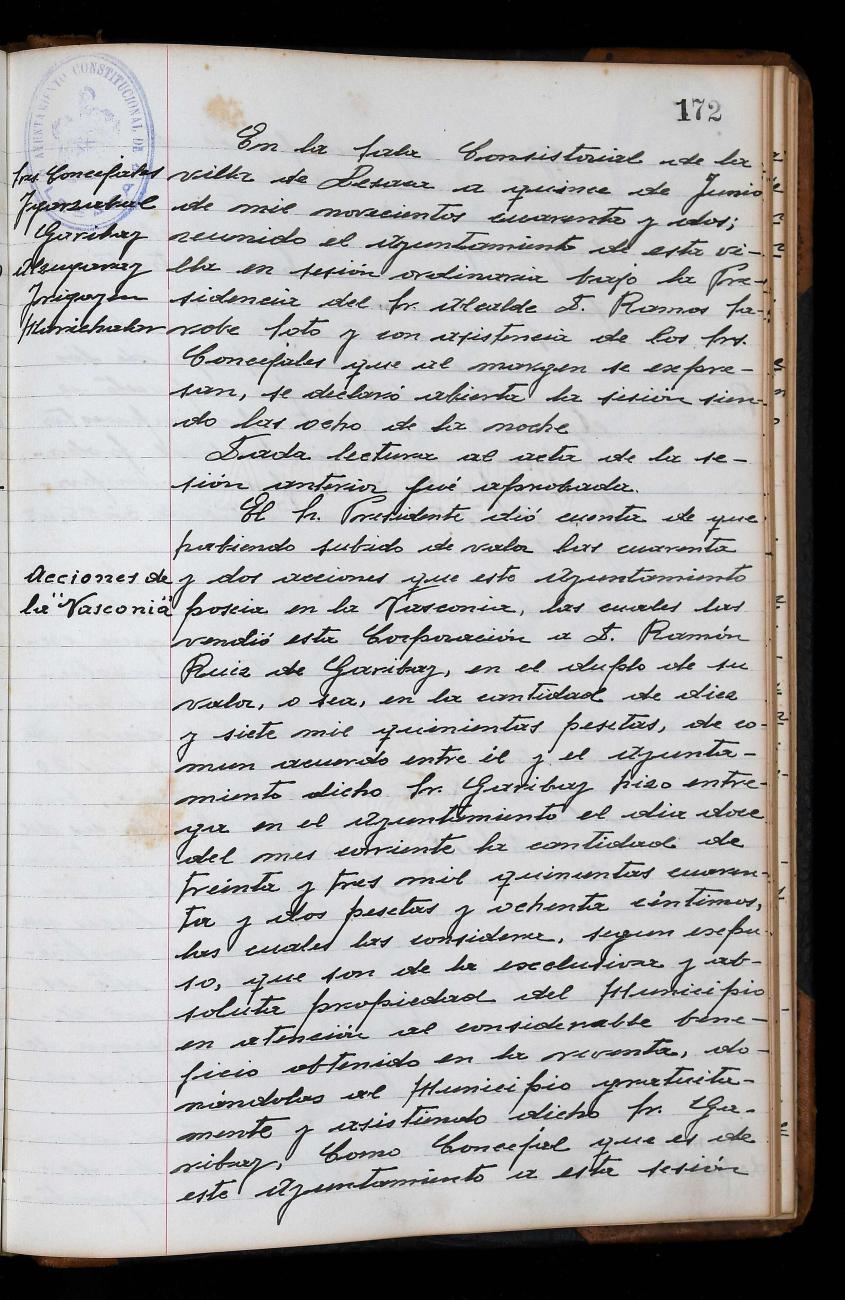 172
AYUNTAMIENTO CONSTITUCIONAL DE
Srs. Concejales
Igarzabal
Garibay
Alzugaray
Irigoyen
Marichalar
En la sala Consistorial de la
villa de Lesaca a quince de Junio
de mil novecientos cuarenta y dos;
reunido el Ayuntamiento de esta vi-
lla en sesión ordinaria bajo la Pre-
sidencia del Sr. Alcalde D. Ramos Ta-
robe Soto y con asistencia de los Srs.
Concejales que al margen se expre-
san, se declaró abierta la sesión sien-
do las ocho de la noche
Dada lectura al acta de la se-
sión anterior fué aprobada.
Acciones de
la "Vasconia"
El Sr. Presidente dió cuenta de que
habiendo subido de valor las cuarenta
y dos acciones que este Ayuntamiento
poseia en la Vasconia, las cuales las
vendió esta Corporación a D. Ramón
Ruiz de Garibay, en el duplo de su
valor, o sea, en la cantidad de diez
y siete mil quinientas pesetas, de co-
mun acuerdo entre él y el Ayunta-
miento dicho Sr. Garibay hizo entre-
ga en el Ayuntamiento el dia doce
del mes corriente la cantidad de
treinta y tres mil quinientas cuaren-
ta y dos pesetas y ochenta céntimos,
las cuales las considera, segun expu-
so, que son de la exclusiva y ab-
soluta propiedad del Municipio
en atención al considerable bene-
ficio obtenido en la reventa, do-
nándolas al Municipio gratuita-
mente y asistiendo dicho Sr. Ga-
ribay, Como Concejal que es de
este Ayuntamiento a esta sesión